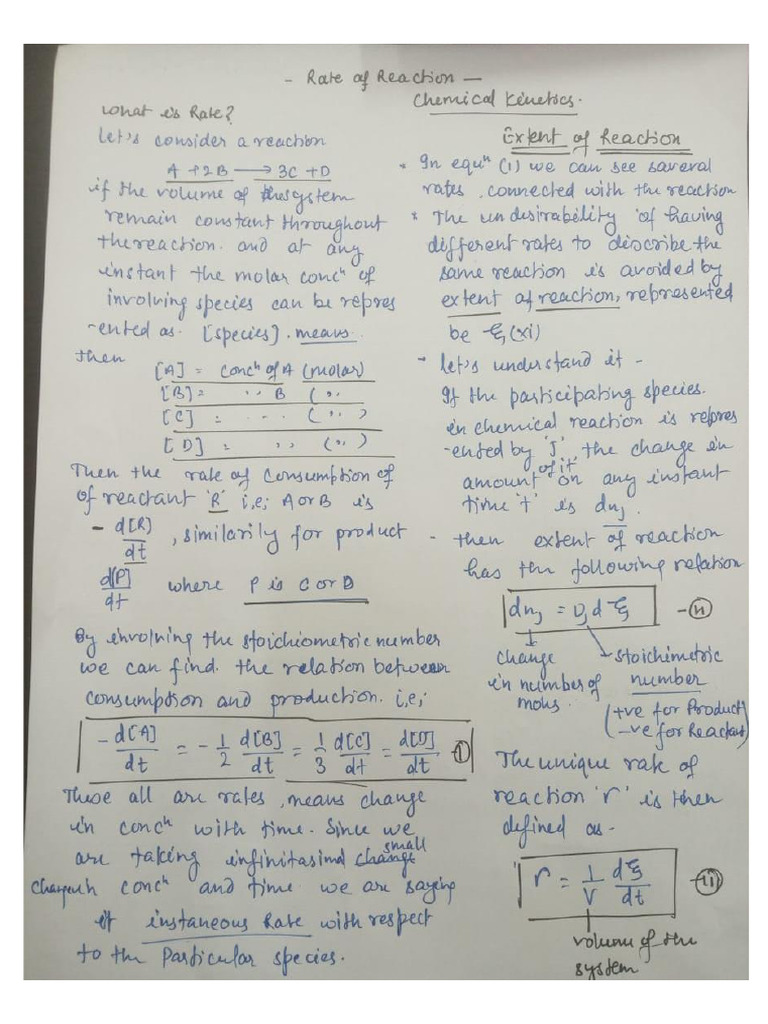 - Rate of Reaction —
Chemical Kinetics.
What is Rate?
Let's consider a reaction
A + 2B ⟶ 3C + D
if the volume of the system
remain constant throughout
the reaction. and at any
instant the molar concⁿ of
involving species can be repres
-ented as. [species]. means
then
[A] = concⁿ of A (molar)
[B] = ,, B ( ,, )
[C] = ... ( ,, )
[D] = ,, ( ,, )
Then the rate of Consumption of
of reactant 'R' i,e; A or B is
- d[R]/dt , similarily for product
d[P]/dt where P is C or D
By involning the stoichiometric number
we can find. the relation between
consumption and production. i,e;
- d[A]/dt = - 1/2 d[B]/dt = 1/3 d[C]/dt = d[D]/dt ①
These all are rates, means change
in concⁿ with time. Since we
are taking infinitasimal small
concⁿ and time we are saying
it instaneous Rate with respect
to the Particular species.
Extent of Reaction
* In equⁿ (1) we can see saveral
rates, connected with the reaction
* The undesirability of having
different rates to discribe the
same reaction is avoided by
extent of reaction, represented
be ξ (xi)
- let's understand it -
If the participating species.
in chemical reaction is repres
-ented by 'J', the change in
amount of it on any instant
time 't' is dnj.
- then extent of reaction
has the following relation
dnj = νj dξ -(ii)
change
in number of
moles.
stoichimetric
number
(+ve for Product)
(-ve for Reactant)
The unique rate of
reaction 'r' is then
defined as -
r = 1/V dξ/dt -(iii)
volume of the
system